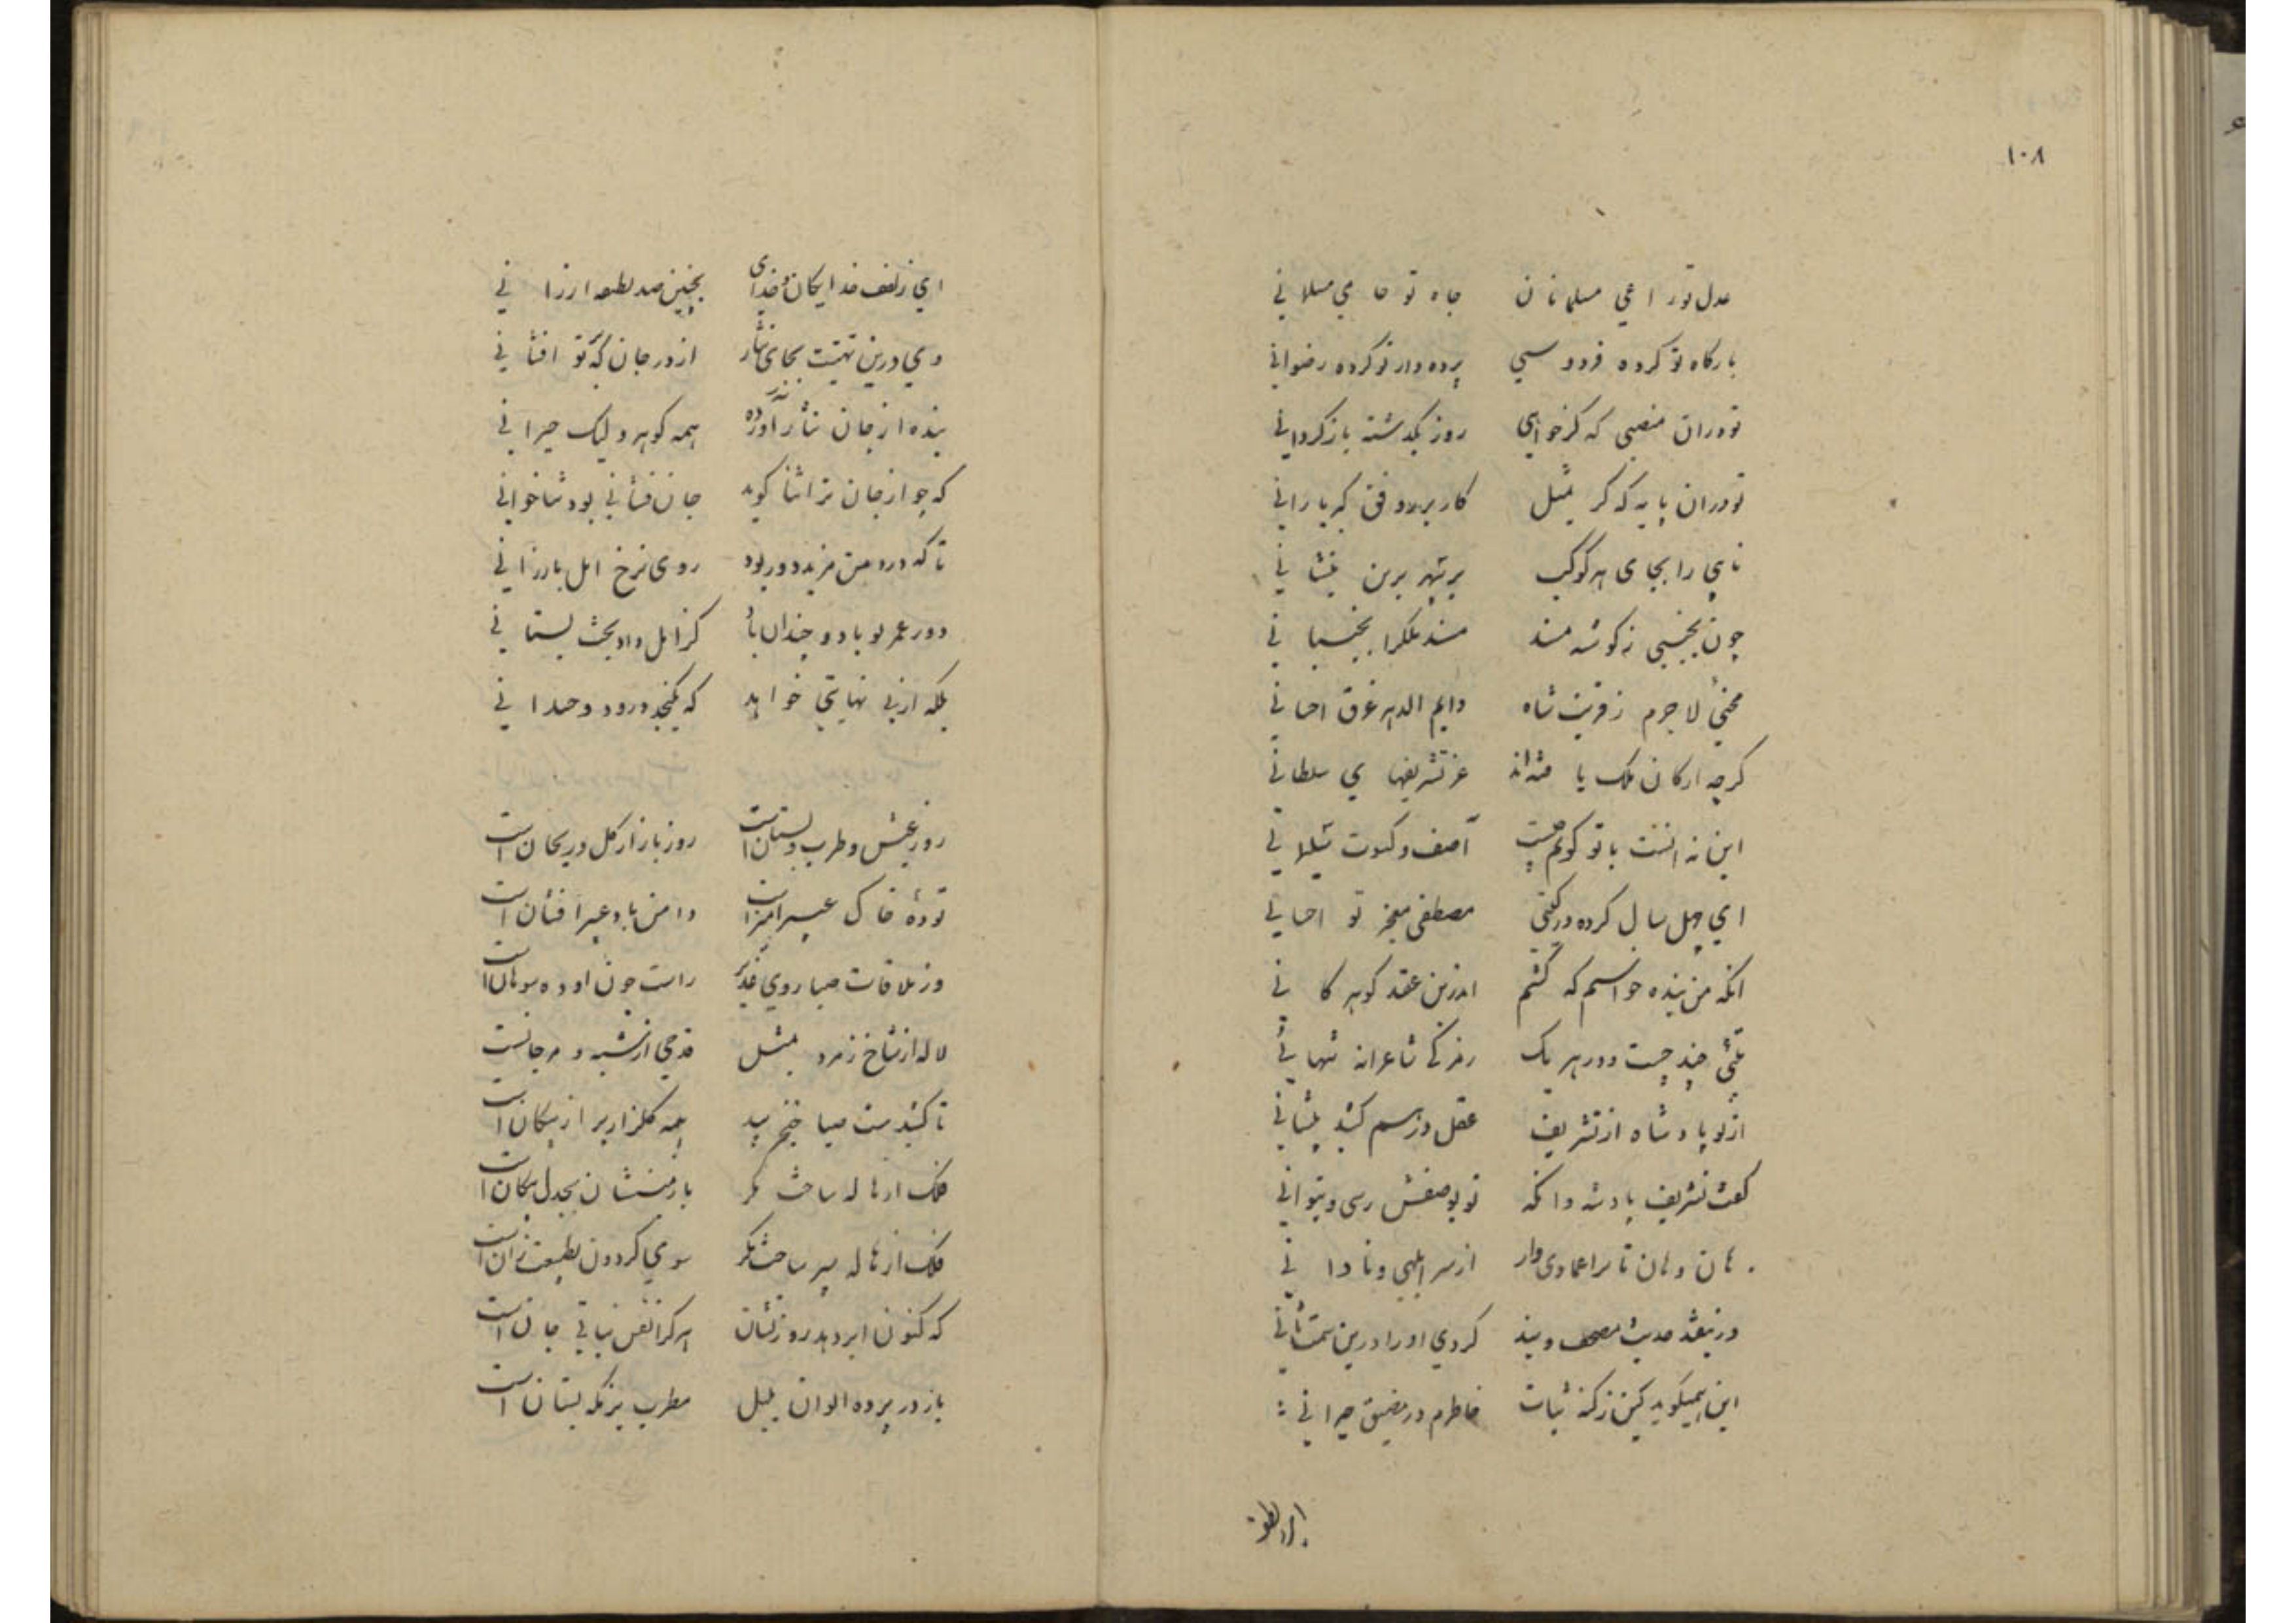 ۱۰۸
عدل تو راعی مسلمانان جاه تو حامی مسلمانی
بارگاه تو کرده فردوسی پرده دار تو کرده رضوانی
تو دران منصبی که گر خواهی روز بگذشته باز گردانی
تو دران پایه که گر بمثل کار بر وفق کبریا رانی
نایبی را بجای هر کوکب بر سپهر برین بنشانی
چون بجنبی ز گوشه مسند مسند ملک را بجنبانی
لاجرم ز قربت شاه دایم الدهر غرق احسانی
گرچه ارکان ملک یافته اند عز تشریفهای سلطانی
این نه آنست با تو گویم چیست آصف و کسوت سلیمانی
ای چهل سال کرده در گیتی مصطفی معجز تو احسانی
انکه من بنده خواستم که کشم اندرین عقد گوهر کانی
بیتکی چند چست و در هر یک رمزکی شاعرانه پنهانی
از تو پادشاه از تشریف عقل در رسم کشید پیشانی
گفت تشریف پادشه وانکه تو بوصفش رسی و بتوانی
هان و هان تا ترا عمادی وار از سر ابلهی و نادانی
در نیفتد حدیث مصحف و بند کردی او را درین سمت ثانی
این همیگوید کین ز گنه ثبات خاطرم در مضیق حیرانی
ای زلطف خدایگان و خدای بچنین صد لطف ارزانی
وی درین تهنیت بجای نثار از در جان که تو افشانی
بنده از جان نثار آورده همه گوهر ولیک حیرانی
که چو از جان ترا ثنا گوید جان فشانی بود ثنا خوانی
تا که در من یزید دور بود روی نرخ امل بارزانی
دور عمر تو باد و چندان باد کز امل داد بخت بستانی
بلکه از بی نهایتی خواهد که نگنجد درو دوحدانی
روز عیش و طرب و بستان است روز بازار گل و ریحان است
توده خاک عبیر آمیز است دامن باد عبیر افشان است
وز ملاقات صبا روی غدیر راست چون آژده سوهان است
لاله از شاخ زمرد بمثل قدحی از شبه و مرجانست
تا کشیدست صبا خنجر بید همه گلزار پر از پیکان است
فلک از هاله ساخت مگر با زمینشان بجدل پیکان است
فلک از هاله سپر ساخت مگر سوی گردون بطبیعت زان است
که کنون ابر دهد روزیشان هر کرا نفس نباتی جان است
باز در پرده الوان بلبل مطرب بزمگه بستان است